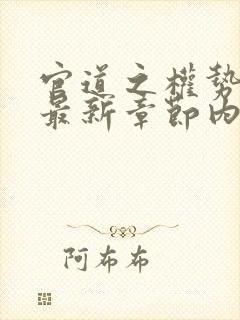 官道之權勢
最新章節內
阿布布